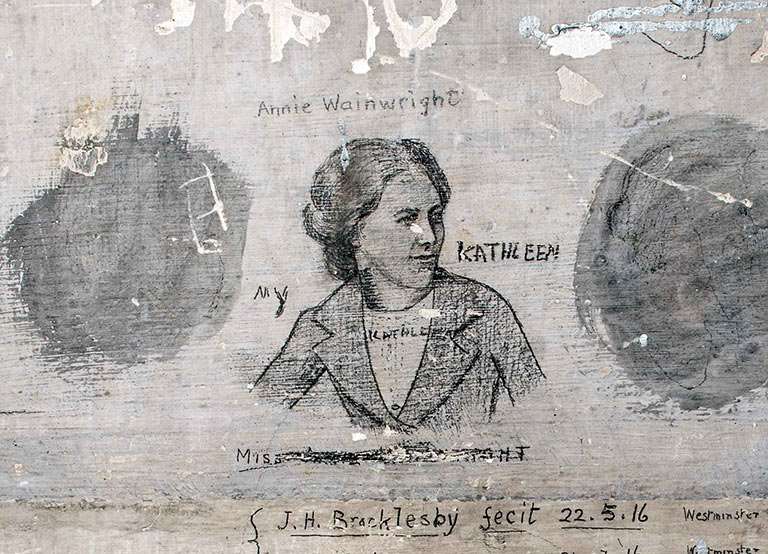 Annie Wainwright
KATHLEEN
MY
KATHLEEN
MISS
J.H. Brocklesby fecit 22.5.16 Westminster
Westminster